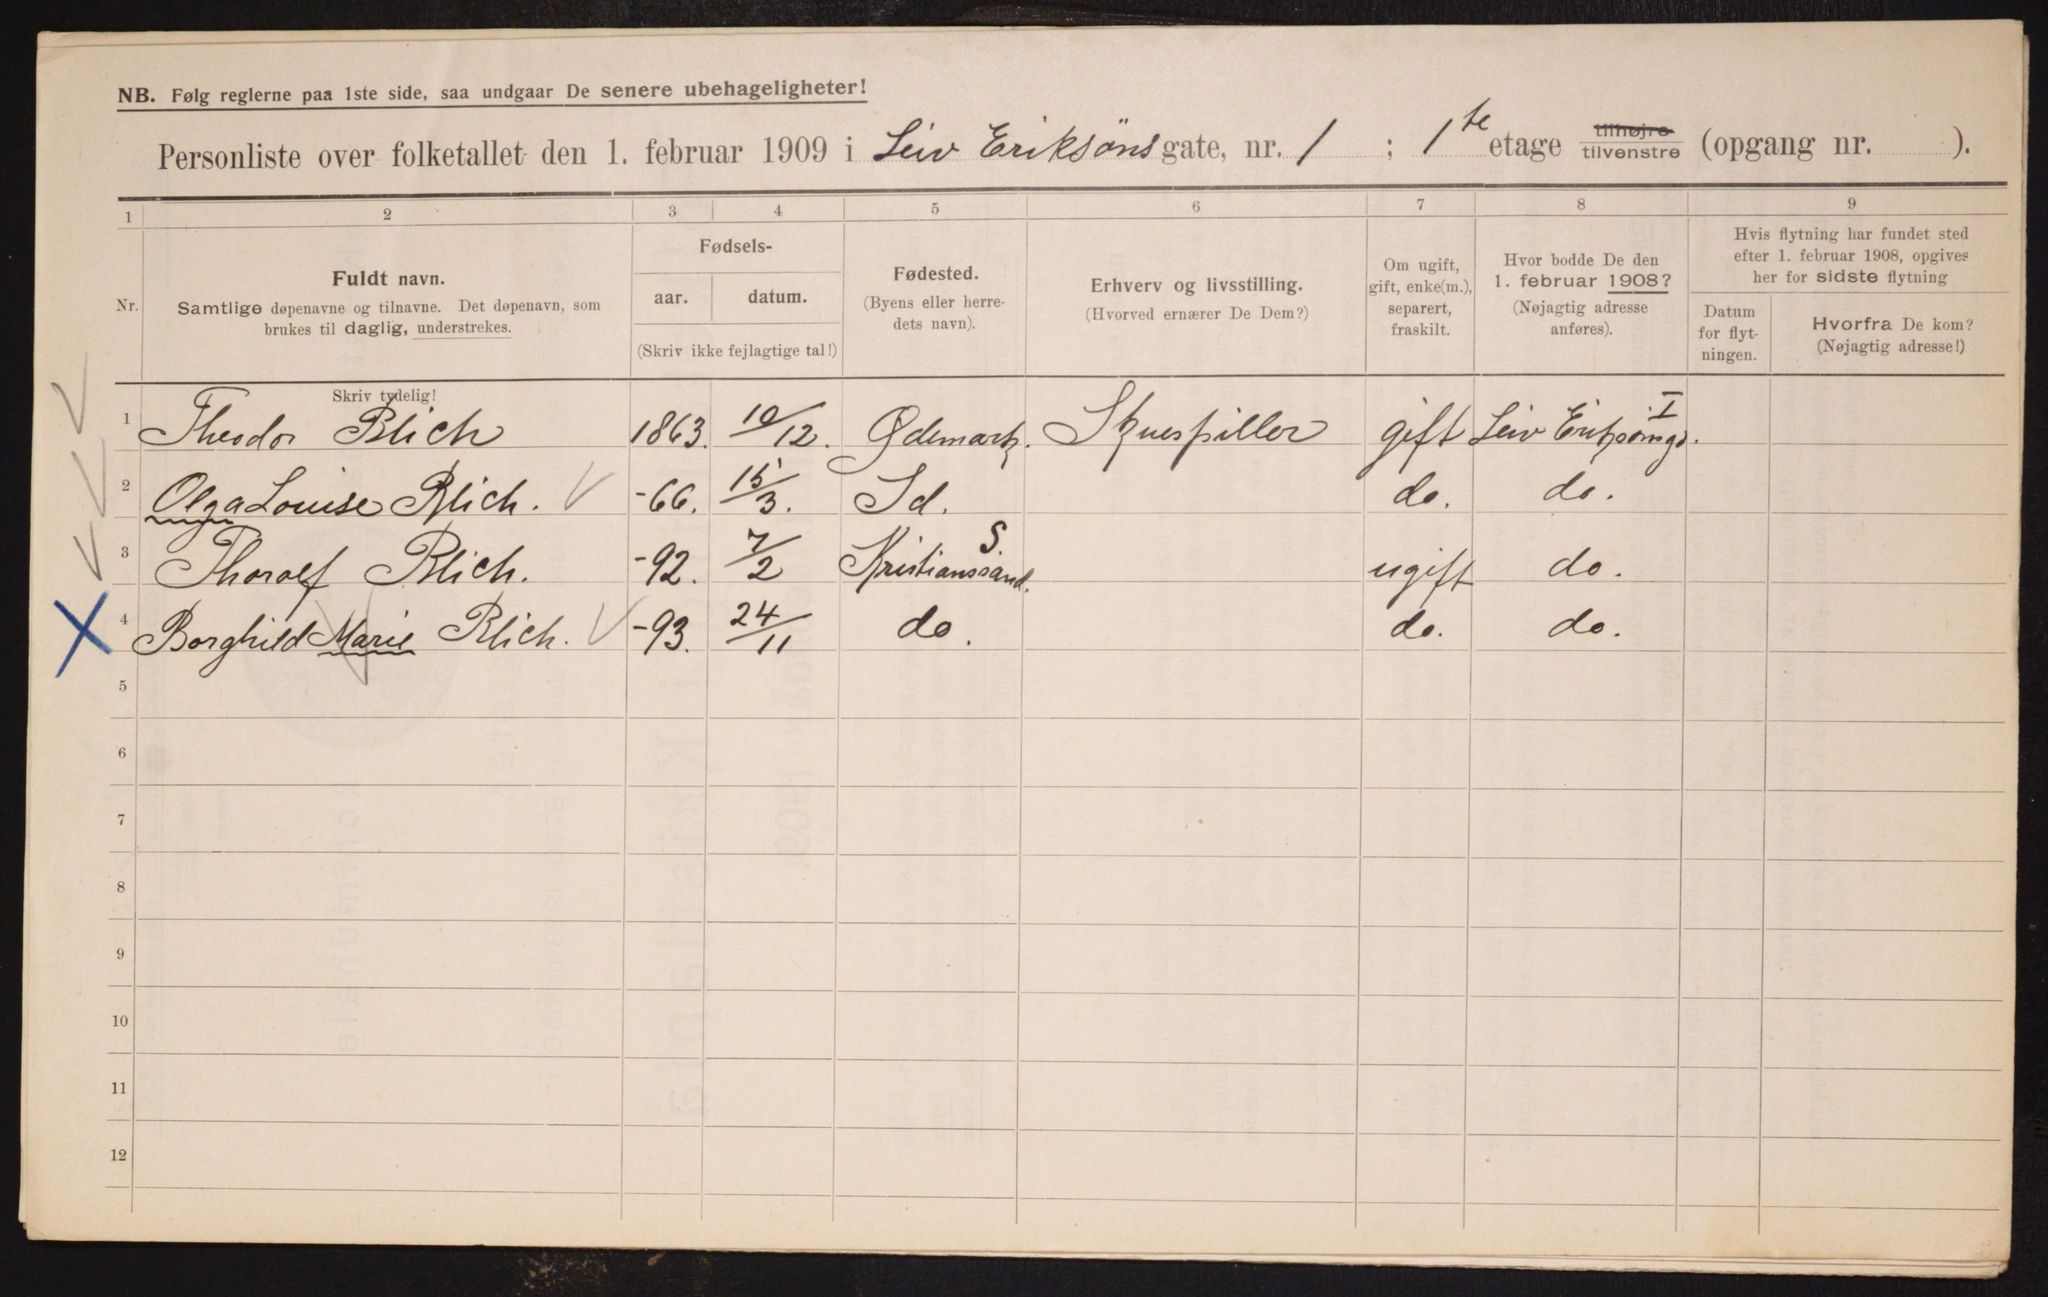 NB. Følg reglerne paa 1ste side, saa undgaar De senere ubehageligheter!
Personliste over folketallet den 1. februar 1909 i Leiv Eriksöns gate, nr. 1 ; 1te etage tilhøjre tilvenstre (opgang nr. ).
1 2 3 4 5 6 7 8 9
Nr.
Fuldt navn.
Samtlige døpenavne og tilnavne. Det døpenavn, som
brukes til daglig, understrekes.
Fødsels-
aar. datum.
(Skriv ikke fejlagtige tal!)
Fødested.
(Byens eller herre-
dets navn).
Erhverv og livsstilling.
(Hvorved ernærer De Dem?)
Om ugift,
gift, enke(m.),
separert,
fraskilt.
Hvor bodde De den
1. februar 1908?
(Nøjagtig adresse
anføres).
Hvis flytning har fundet sted
efter 1. februar 1908, opgives
her for sidste flytning
Datum
for flyt-
ningen.
Hvorfra De kom?
(Nøjagtig adresse!)
Skriv tydelig!
1 Theodor Blich 1863. 10/12. Ødemark. Skuespiller gift Leiv Eriksönsgd. I
2 Olga Louise Blich. -66. 15/3. Id. do. do.
3 Thoralf Blich. -92. 7/2 Kristianssand. S. ugift do.
4 Borghild Marie Blich. -93. 24/11 do. do. do.
5
6
7
8
9
10
11
12